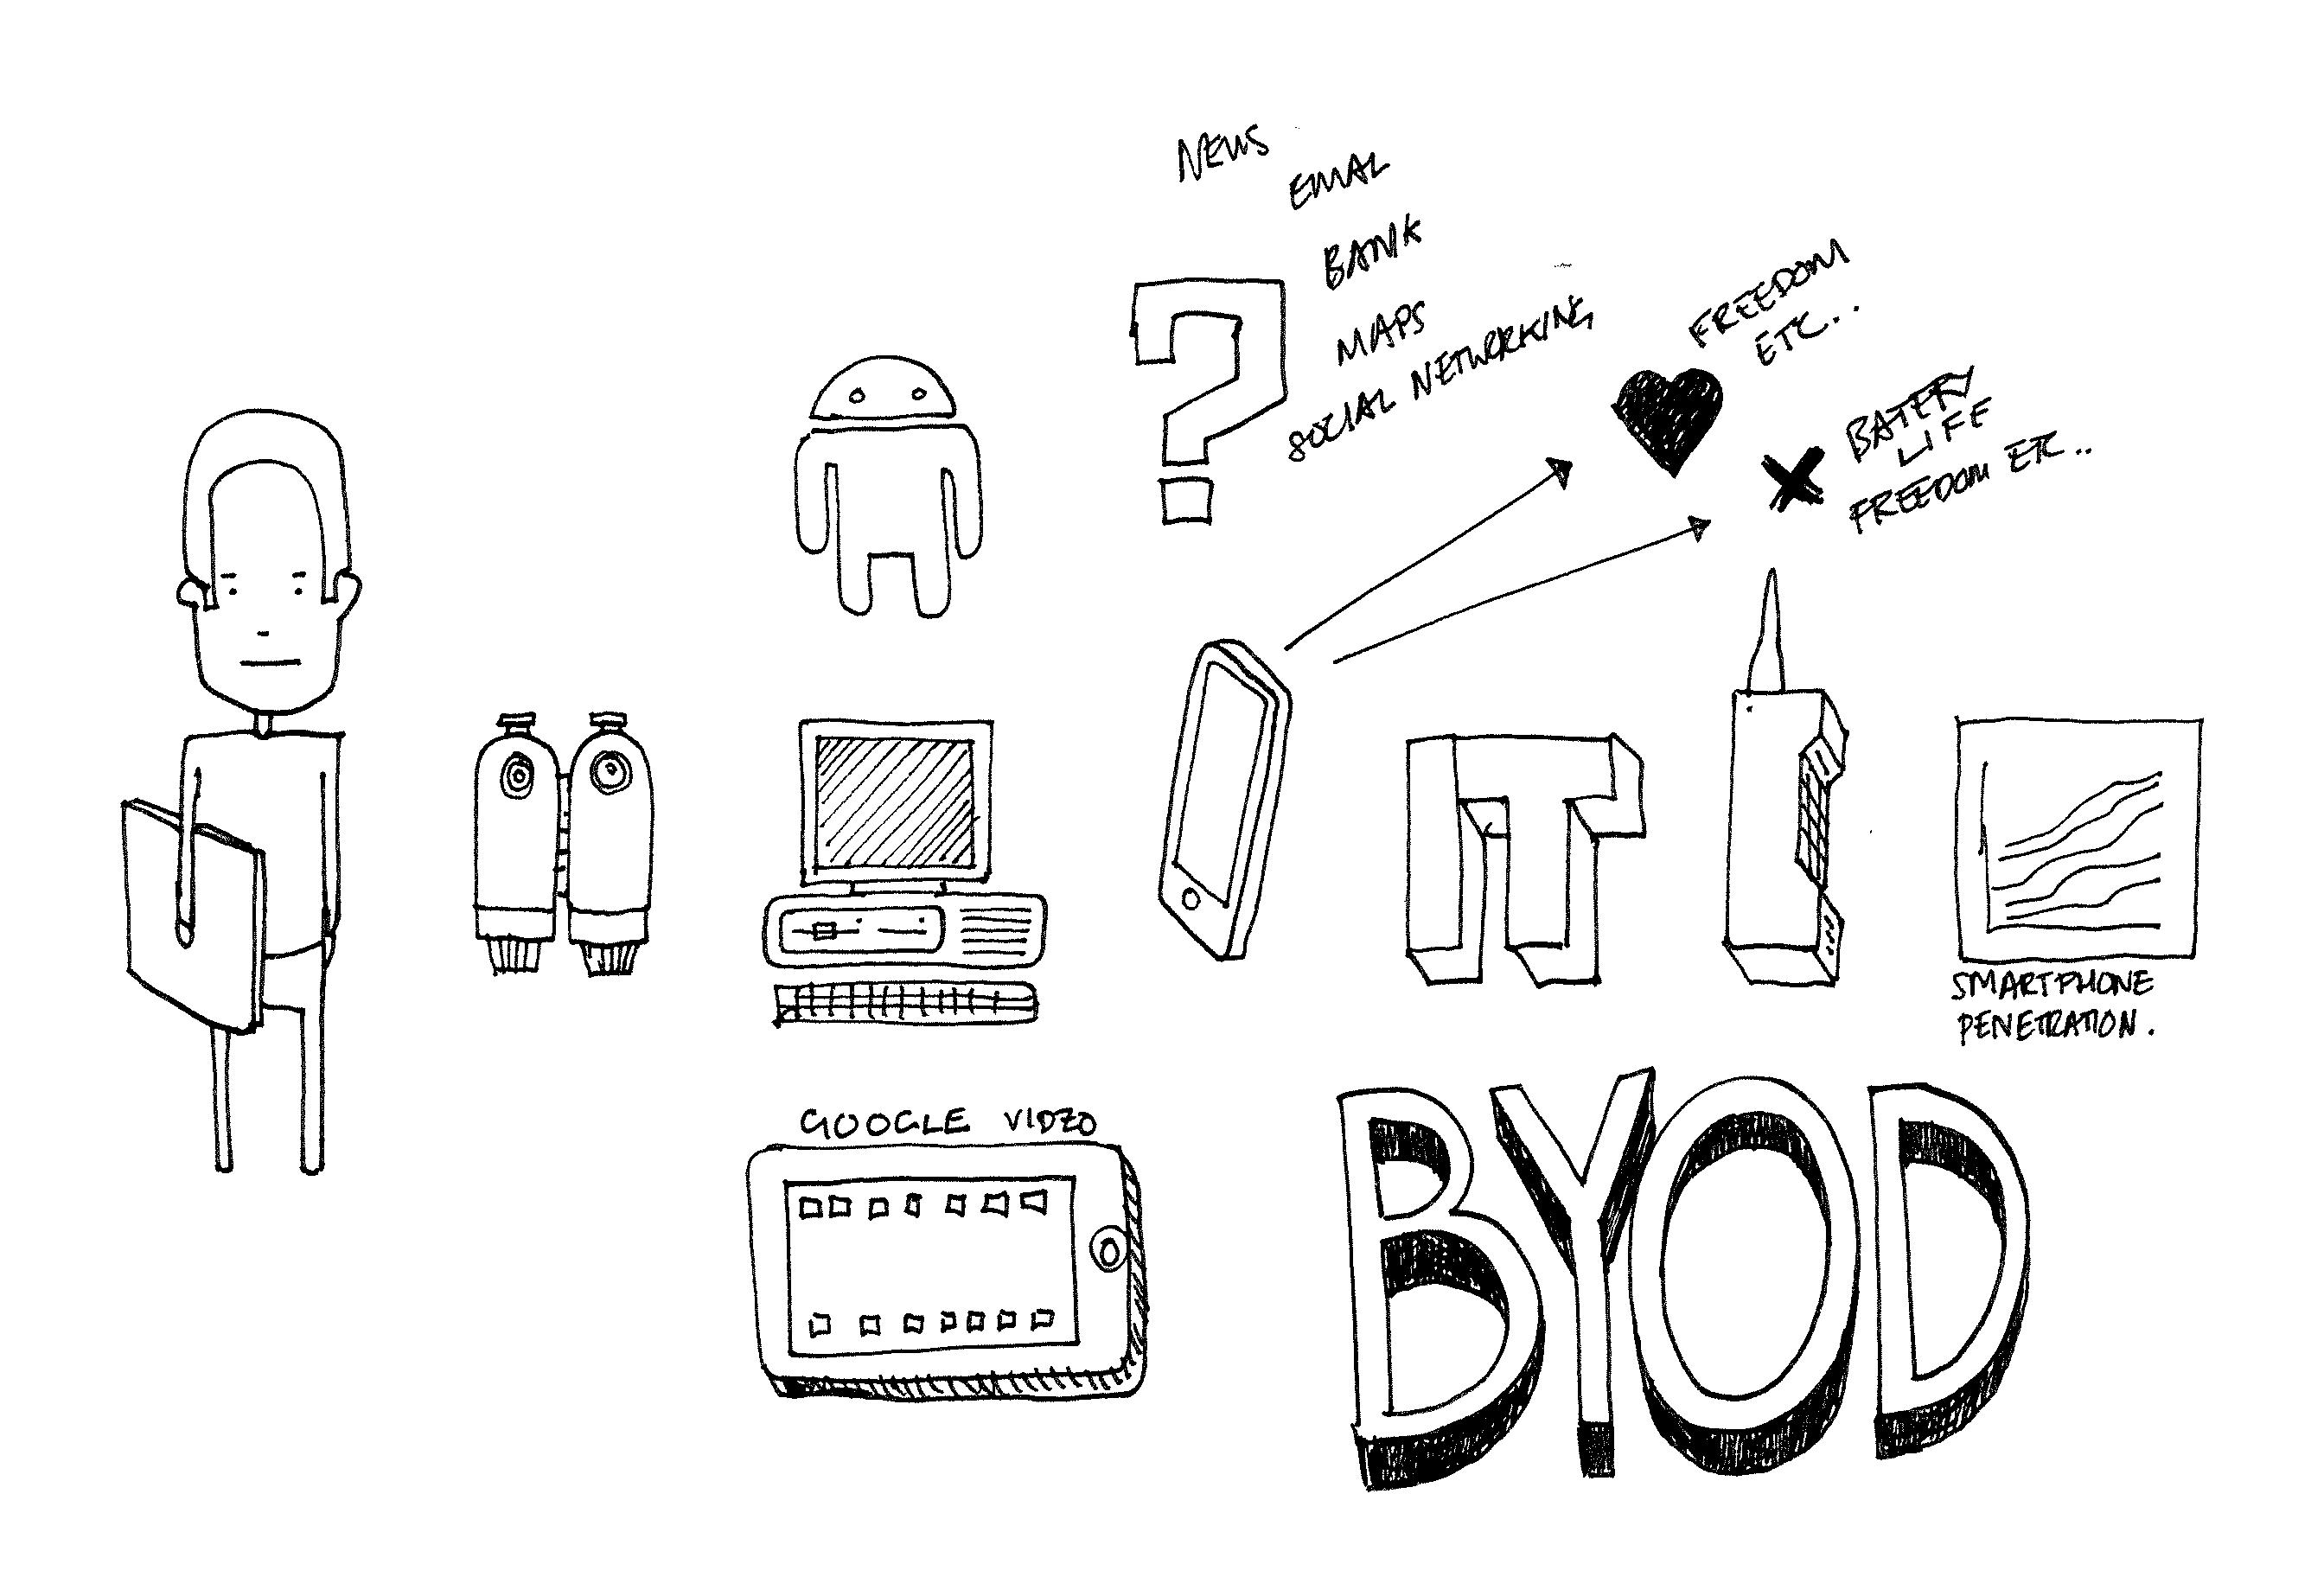 NEWS
EMAL
BANK
MAPS
SOCIAL NETWORKING
FREEDOM
ETC..
BATERY
LIFE
FREEDOM ETC..
IT
SMARTPHONE
PENETRATION.
GOOGLE VIDEO
BYOD